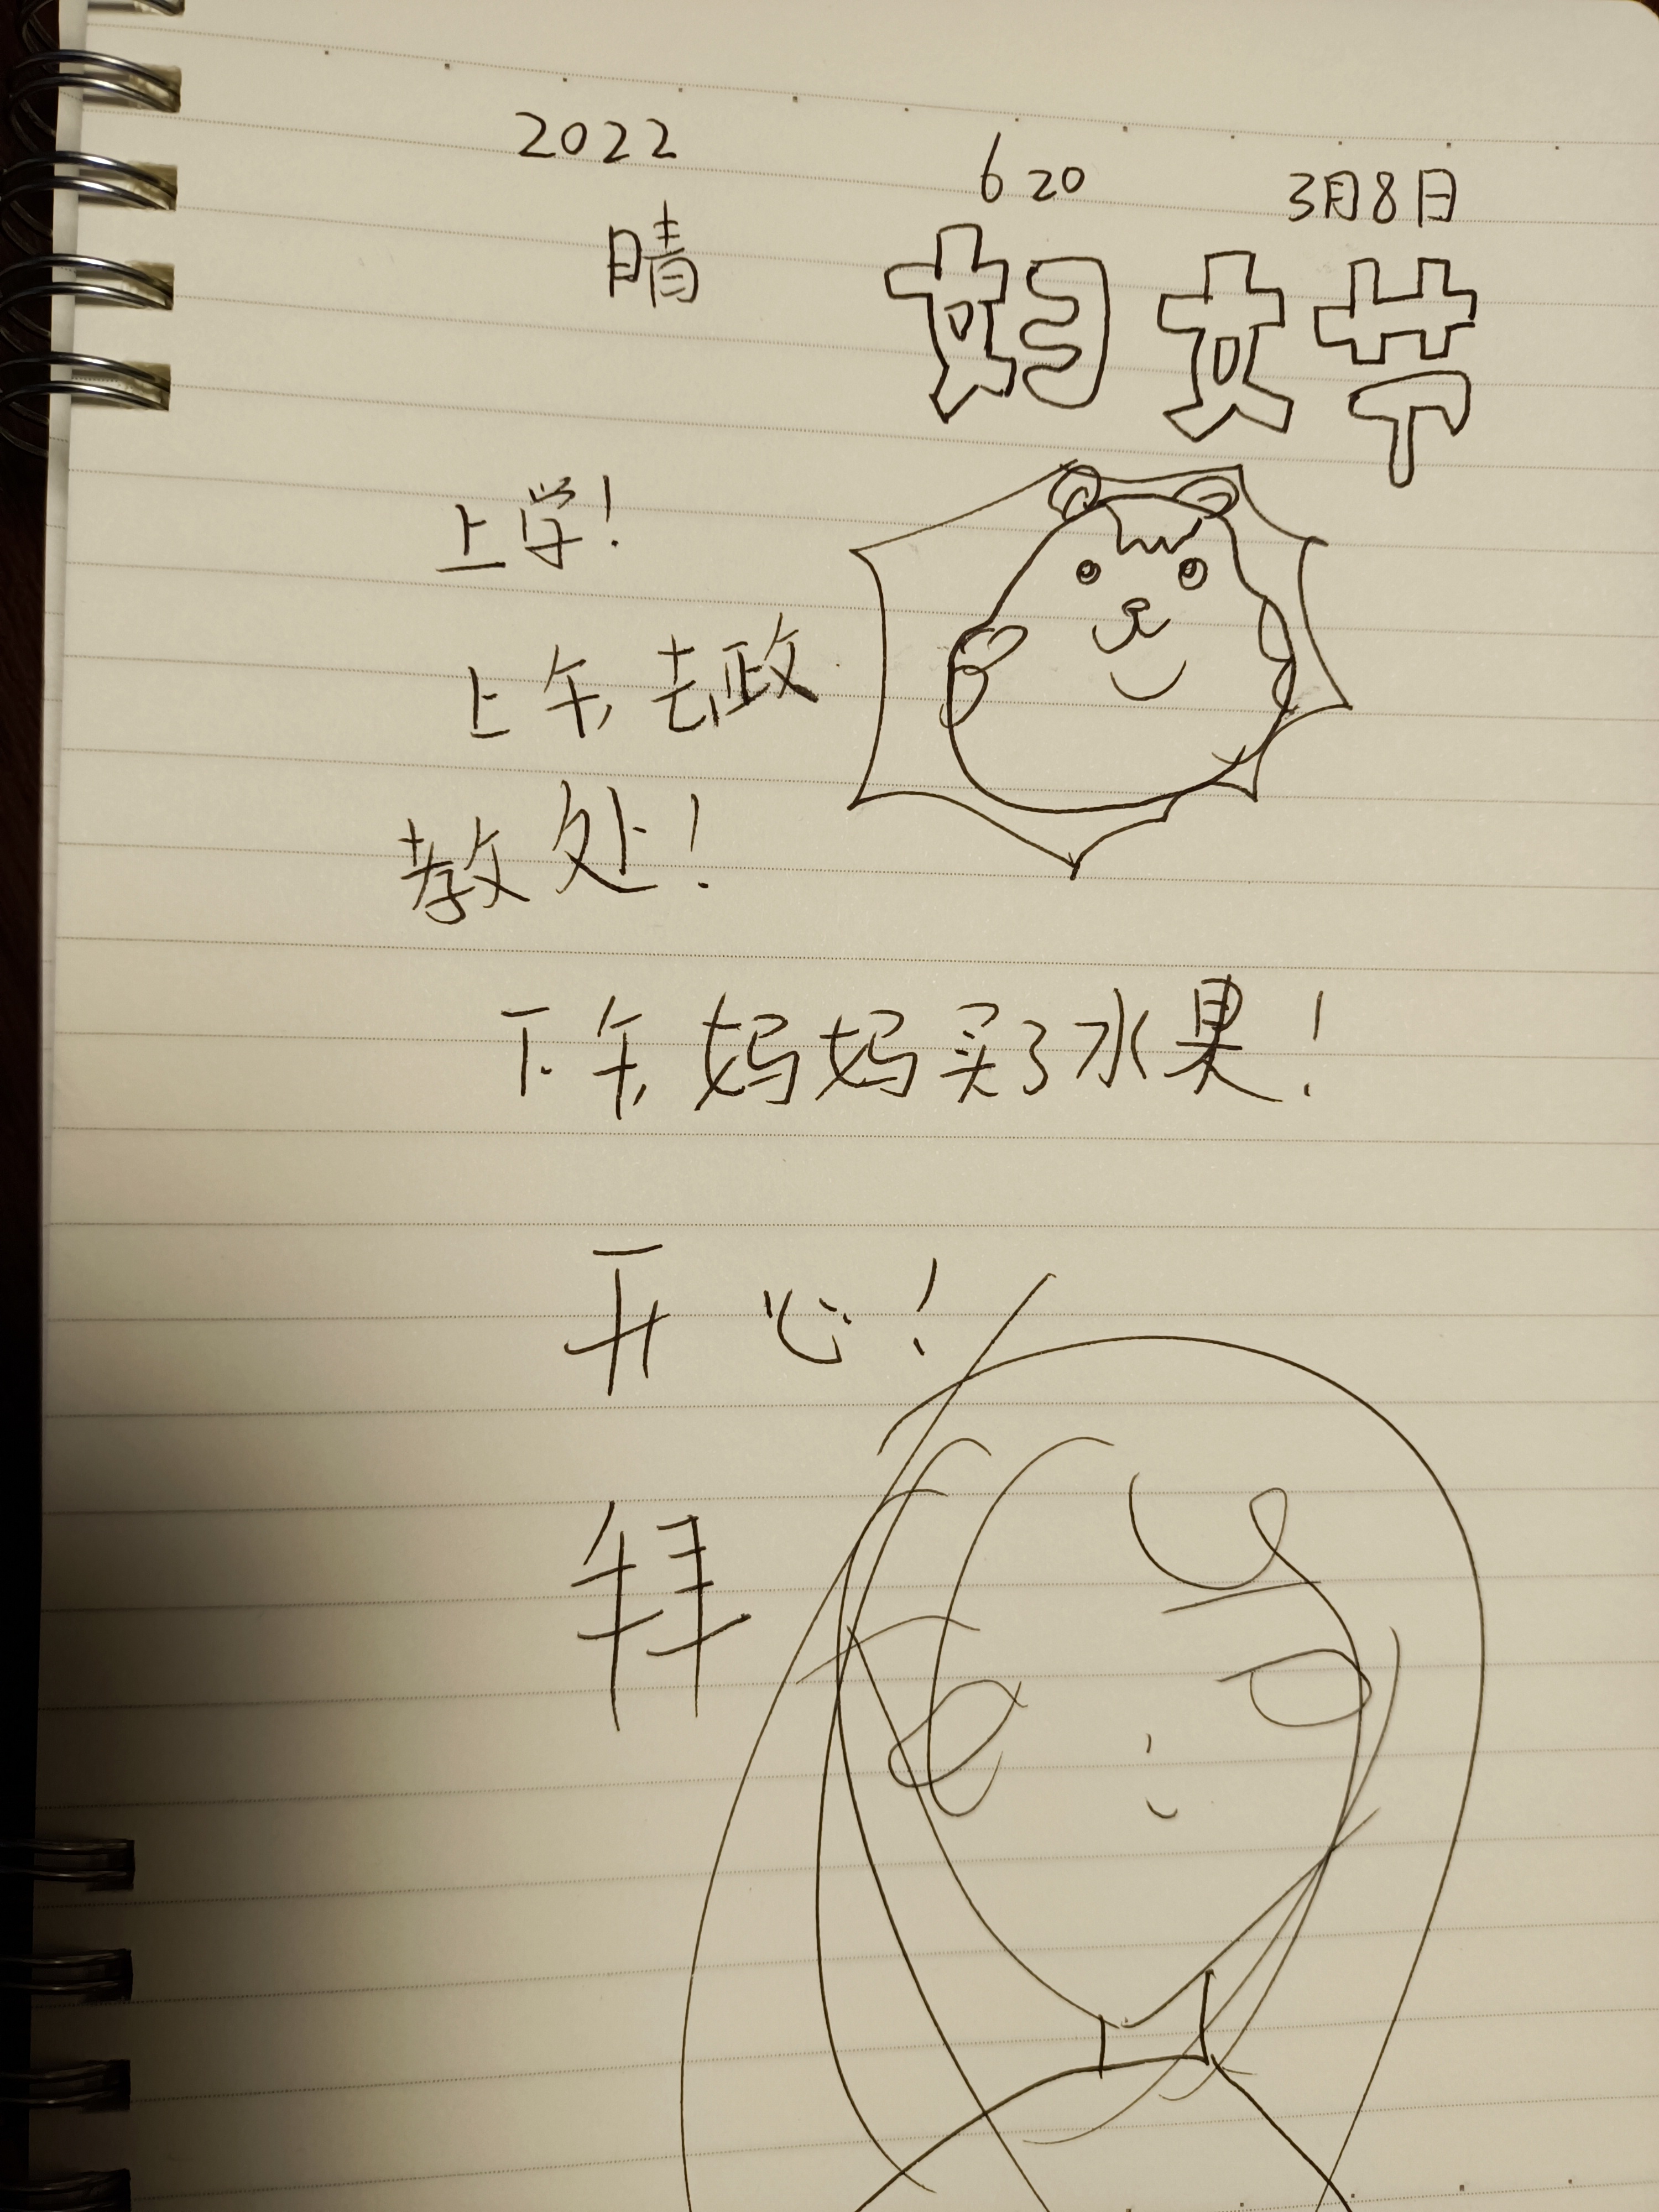 2022 620 3月8日
晴 妇女节
上学！
上午去政
教处！
下午妈妈买了水果！
开心！
拜